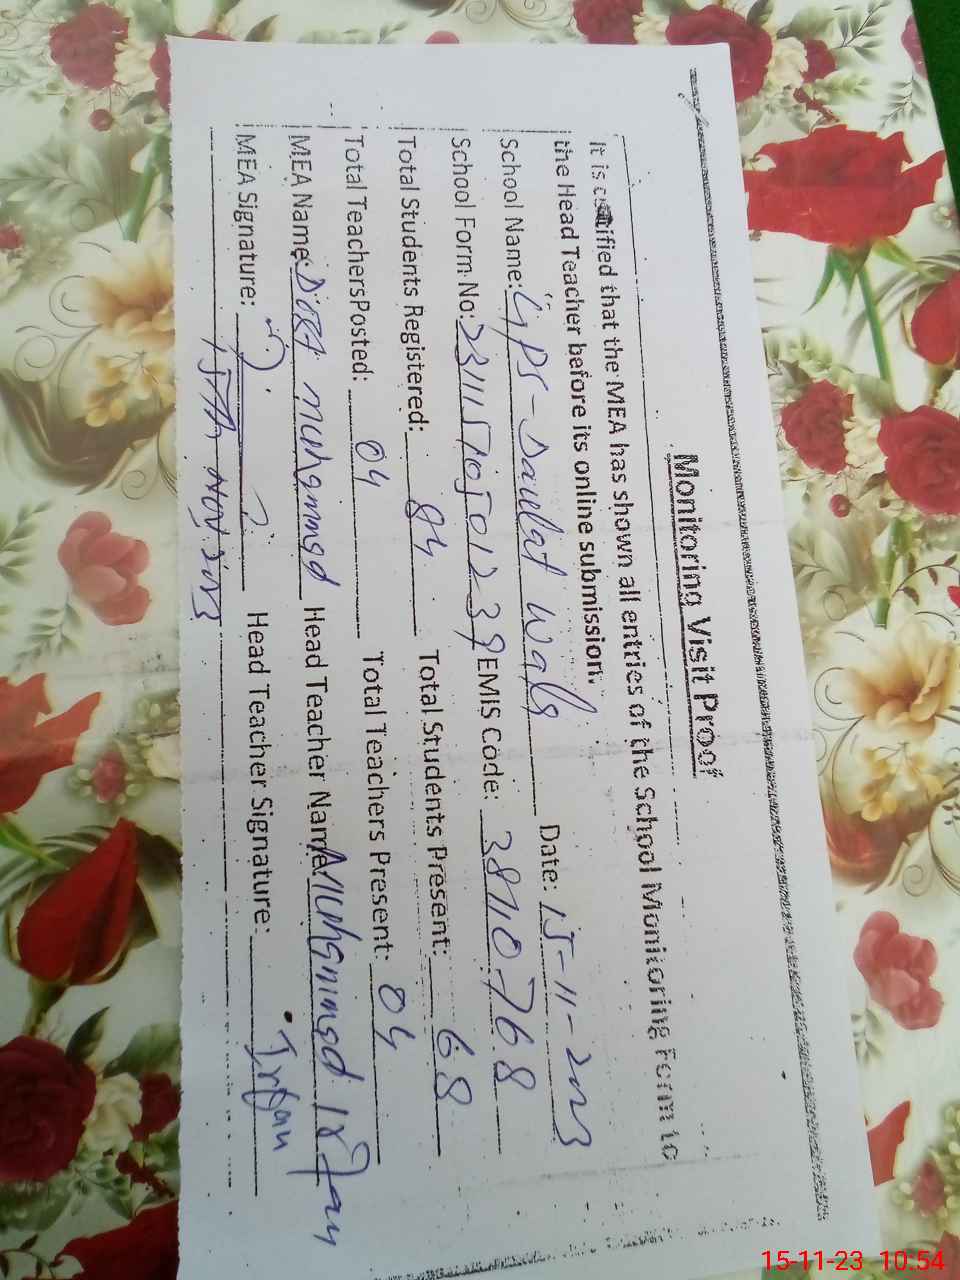 Monitoring Visit Proof
It is certified that the MEA has shown all entries of the School Monitoring Form to
the Head Teacher before its online submission.
School Name: GPS-Daulat Wala Date: 15-11-2023
School Form No: EMIS Code: 38110768
Total Students Registered: 84 Total Students Present: 68
Total Teachers Posted: 04 Total Teachers Present: 04
MEA Name: Dost Muhammad Head Teacher Name: Muhammad Irfan
MEA Signature: Head Teacher Signature: Irfan
15th Nov 2023
15-11-23 10:54